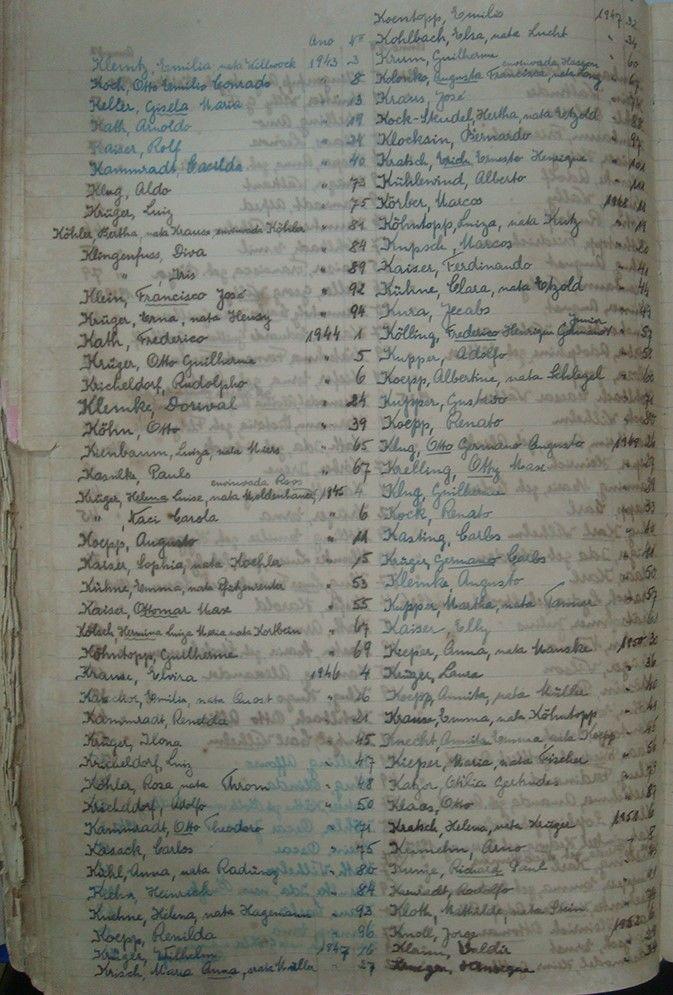 Ano Nº
Klentz, Emilia, nata Kellwock 1943 3
Koch, Otto Emilio Conrado " 8
Keller, Gisela Maria " 13
Kath, Arnoldo " 19
Kaiser, Rolf " 24
Kammradt, Casilda " 40
Klug, Aldo " 73
Krüger, Luiz " 75
Köhler, Bertha, nata Krauss, enviuvada Köhler " 81
Klingenfuss, Diva " 84
" , Iris " 89
Klein, Francisco José " 92
Krüger, Erna, nata Hensy " 94
Kath, Frederico 1944 1
Krüger, Otto Guilherme " 5
Kricheldorf, Rudolpho " 6
Klemke, Dorival " 24
Köhn, Otto " 39
Kienbaum, Luiza, nata Miers " 65
Kasulke, Paulo " 67
enviuvada Roos
Krüger, Helena Luise, nata Woldenhauer, 1945 4
" , Naci Carola " 6
Koepp, Augusto " 11
Kaiser, Sophia, nata Koehler " 15
Kühne, Emma, nata " 53
Kaiser, Ottomar Max " 55
Kölsch, Hermina Luiza Maria nata Kortbein " 67
Köhntopp, Guilherme " 69
Krause, Elvira 1946 4
Emilia, nata " 16
Kammradt, Renilda " 21
Krüger, Ilona " 45
Kricheldorf, Luiz " 47
Köhler, Rosa, nata Throm " 48
Kricheldorf, Adolfo " 50
Kammradt, Otto Theodoro " 71
Kasack, Carlos " 75
Kühl, Anna, nata Radünz " 80
Heinrich " 84
Kuehne, Helena, nata Hagemann " 93
Koepp, Renilda " 96
Krüger, Wilhelm 1947 16
Krisch, Maria Anna, nata Müller " 27
Koentopp, Emilio 1947 32
Kohlbach, Elsa, nata Lucht " 34
Krum, Guilherme " 60
Augusta Francisca, nata Lang " 67
Kraus, José "
Kock-Studel, Hertha, nata Etzold " 88
Klocksin, Bernardo " 97
Kratsch, Erich Ernesto Henrique " 101
Kühlewind, Alberto " 111
Körber, Marcos 1948 11
Köhntopp, Luiza, nata Kutz " 19
Kupsch, Marcos " 20
Kaiser, Ferdinando " 41
Kühne, Clara, nata Etzold " 44
Kurz, Jacobs " 49
Junior
Kölling, Frederico Henrique Germano " 57
Kupper, Adolfo " 58
Koepp, Albertine, nata Schlegel " 60
Kupper, Gustavo " 71
Koepp, Renato "
Klug, Otto Germano Augusto 1949 26
Krelling, Otty Max " 27
Klug, Guilherme "
Kock, Renato " 33
Kasting, Carlos "
Krüger, Germano Carlos " 41
Klemke Augusto " 50
Kupper, Martha, nata " 57
Kaiser, Elly "
Kieper, Anna, nata Manske 1950 30
Krüger, Laura " 36
Koepp, Annita, nata Müller " 40
Krause, Emma, nata Köhntopp " 41
Knecht Annita Emma, nata Koepp " 45
Kieper, Maria, nata Fischer "
Otilia Gertrudes "
Klaas, Otto "
Kratsch, Helena, nata Krüger
Arno "
Richard Paul "
Rodolfo "
Kloth, Mathilde, nata Stein "
Knoll, Jorge 1952
Klaim, Valdir "
Henrique "